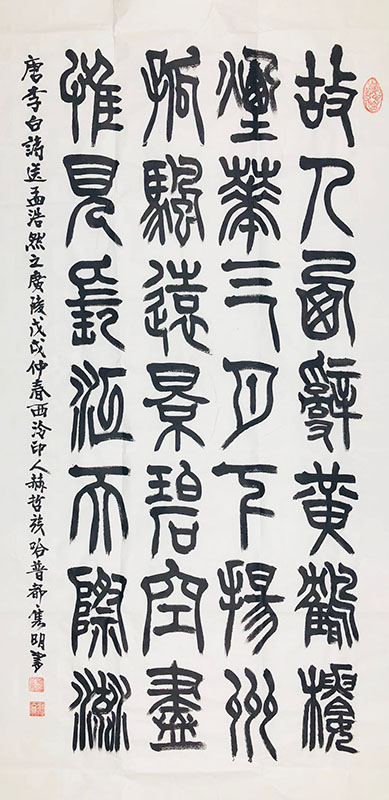 故人西辭黃鶴樓
煙華三月下揚州
孤颿遠景碧空盡
惟見長江天際流
唐李白詩送孟浩然之廣陵戊戌仲春西泠印人赫哲族哈普都隽明書